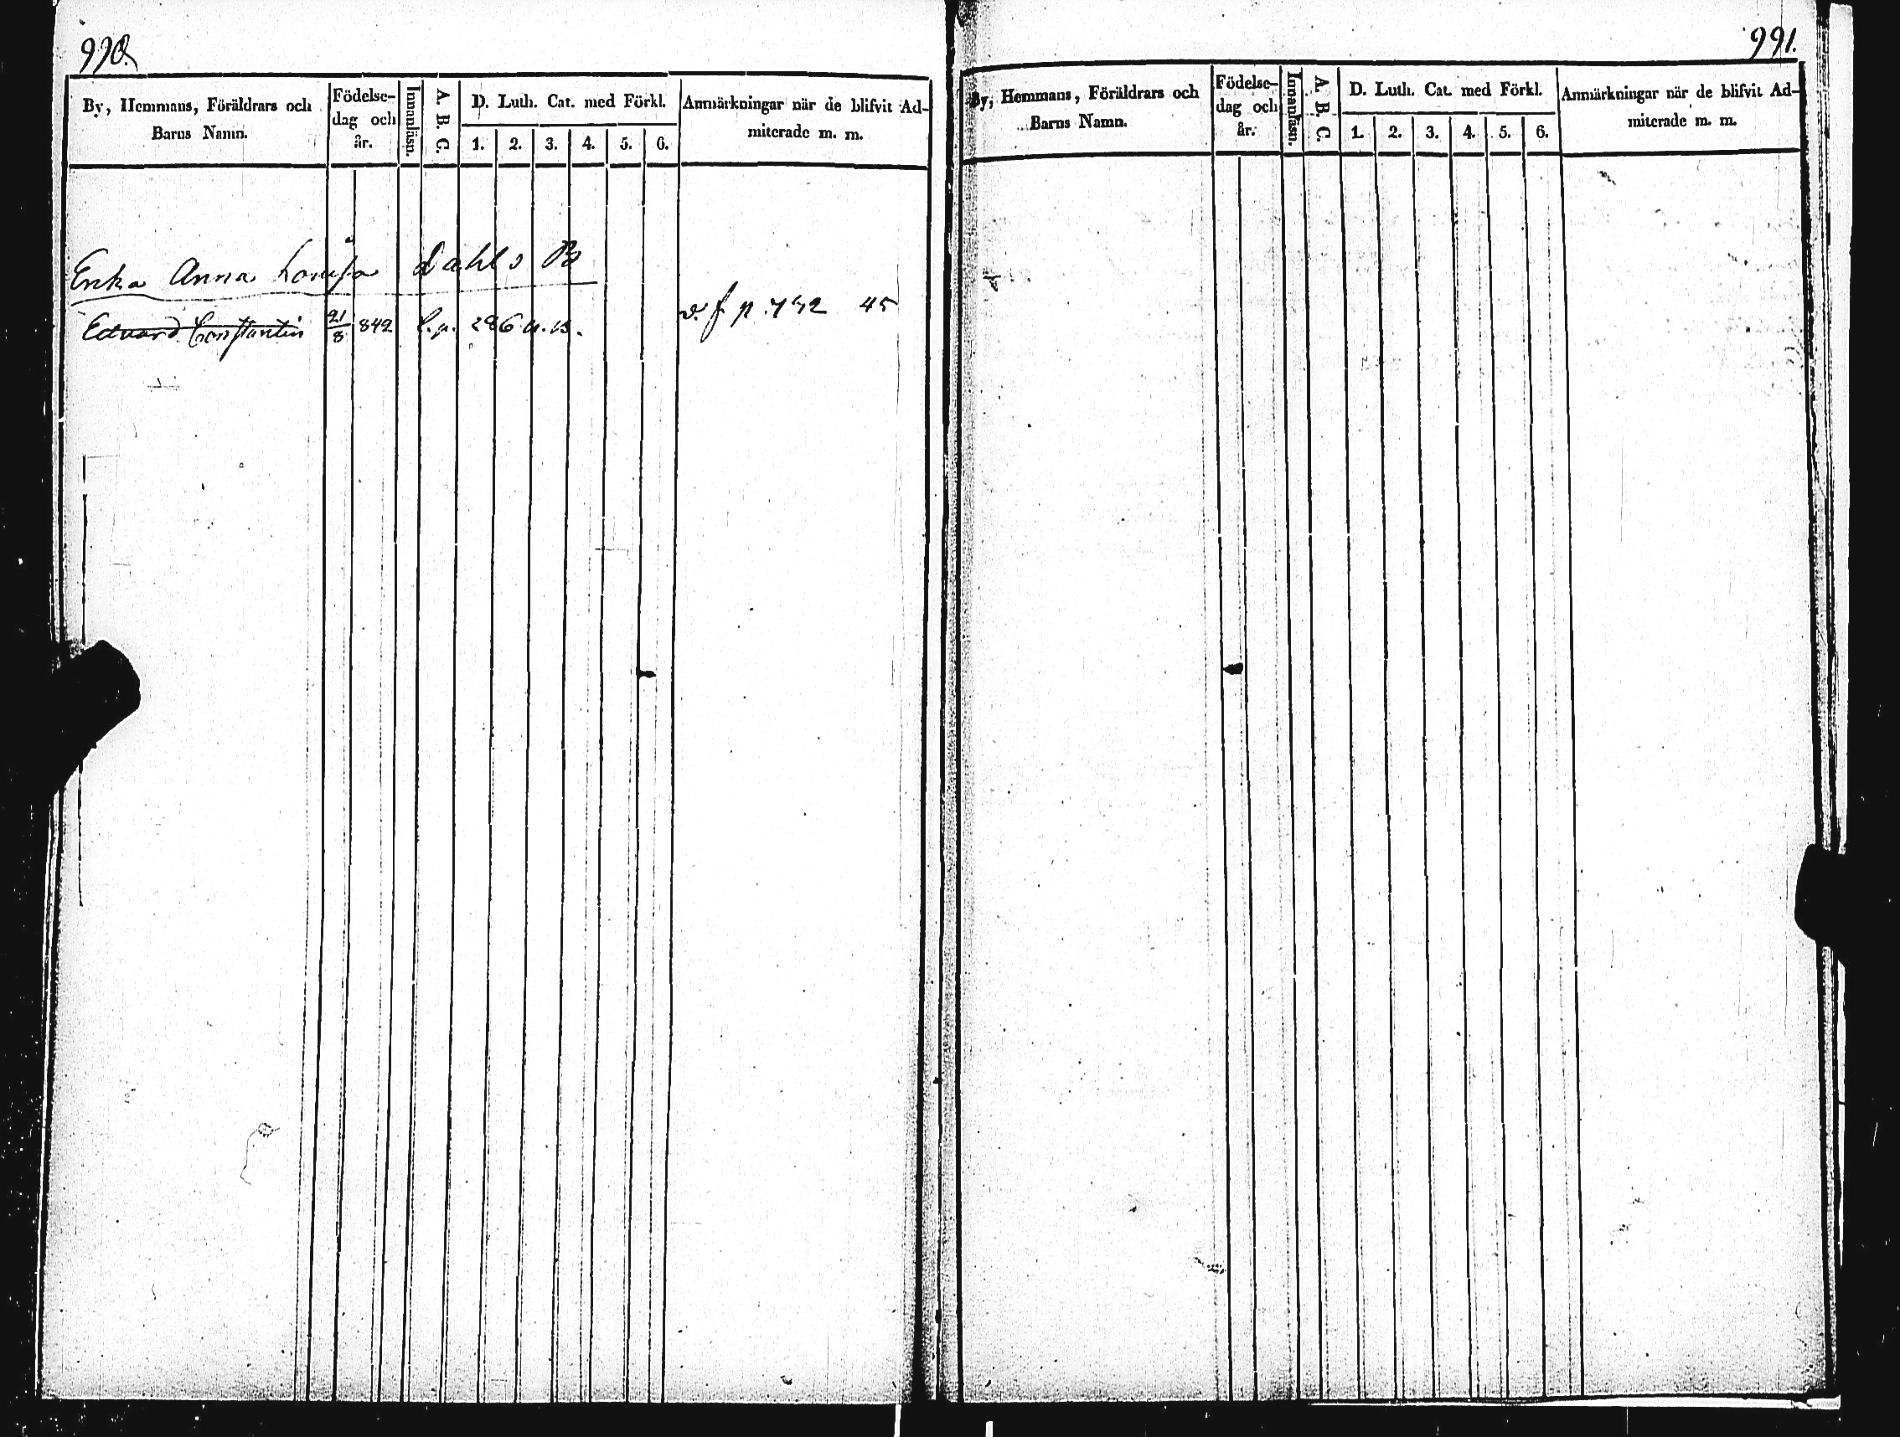 990.
By, Hemmans, Föräldrars och Barns Namn.
Födelse-dag och år.
Innanläsn.
A. B. C.
D. Luth. Cat. med Förkl.
1. 2. 3. 4. 5. 6.
Anmärkningar när de blifvit Ad-
miterade m. m.
Enka Anna Lovisa Dahls B
Eduard Constantin 21/8 842 C. p. 286 u. B. v. f p. 732 45
991.
By, Hemmans, Föräldrars och
Barns Namn.
Födelse-
dag och
år.
Innanläsn.
A. B. C.
D. Luth. Cat. med Förkl.
1. 2. 3. 4. 5. 6.
Anmärkningar när de blifvit Ad-
miterade m. m.